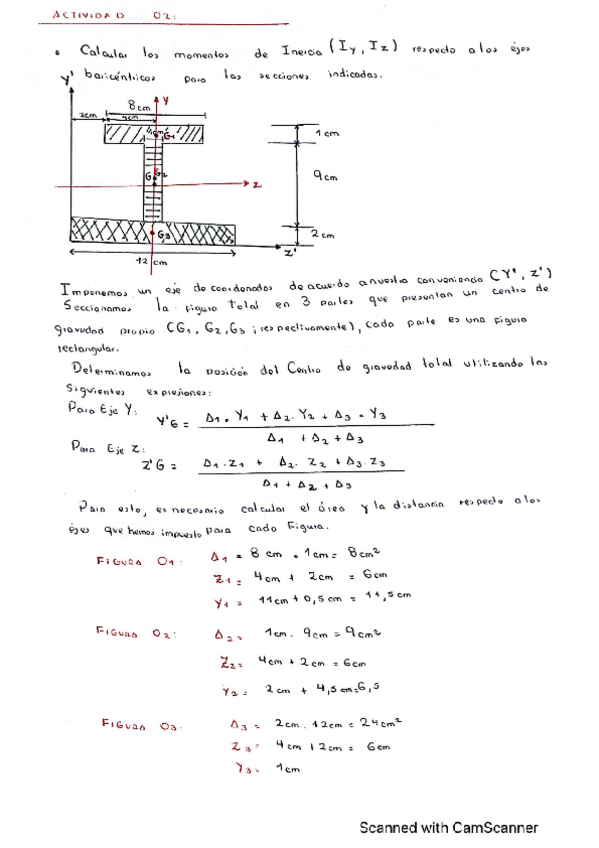 ACTIVIDAD 02:
• Calcular los momentos de Inercia (Iy, Iz) respecto a los ejes
baricéntricos para las secciones indicadas.
Y'
Y
8cm
2cm
4cm
G1
1cm
G
G2
Z
9cm
G3
2cm
Z'
12cm
Imponemos un eje de coordenadas de acuerdo a nuestra conveniencia (Y', Z')
Seccionamos la figura total en 3 partes que presentan un centro de
gravedad propio (G1, G2, G3 ; respectivamente), cada parte es una figura
rectangular.
Determinamos la posición del Centro de gravedad total utilizando las
siguientes expresiones:
Para Eje Y: Y'G = Δ1 . Y1 + Δ2 . Y2 + Δ3 . Y3
Δ1 + Δ2 + Δ3
Para Eje Z:
Z'G = Δ1 . Z1 + Δ2 . Z2 + Δ3 . Z3
Δ1 + Δ2 + Δ3
Para esto, es necesario calcular el área y la distancia respecto a los
éjes que hemos impuesto para cada Figura.
FIGURA 01: Δ1 = 8 cm . 1cm = 8cm²
Z1 = 4cm + 2cm = 6cm
Y1 = 11cm + 0,5cm = 11,5cm
FIGURA 02: Δ2 = 1cm . 9cm = 9cm²
Z2 = 4cm + 2cm = 6cm
Y2 = 2cm + 4,5cm = 6,5
FIGURA 03: Δ3 = 2cm . 12cm = 24cm²
Z3 = 4cm + 2cm = 6cm
Y3 = 1cm
Scanned with CamScanner